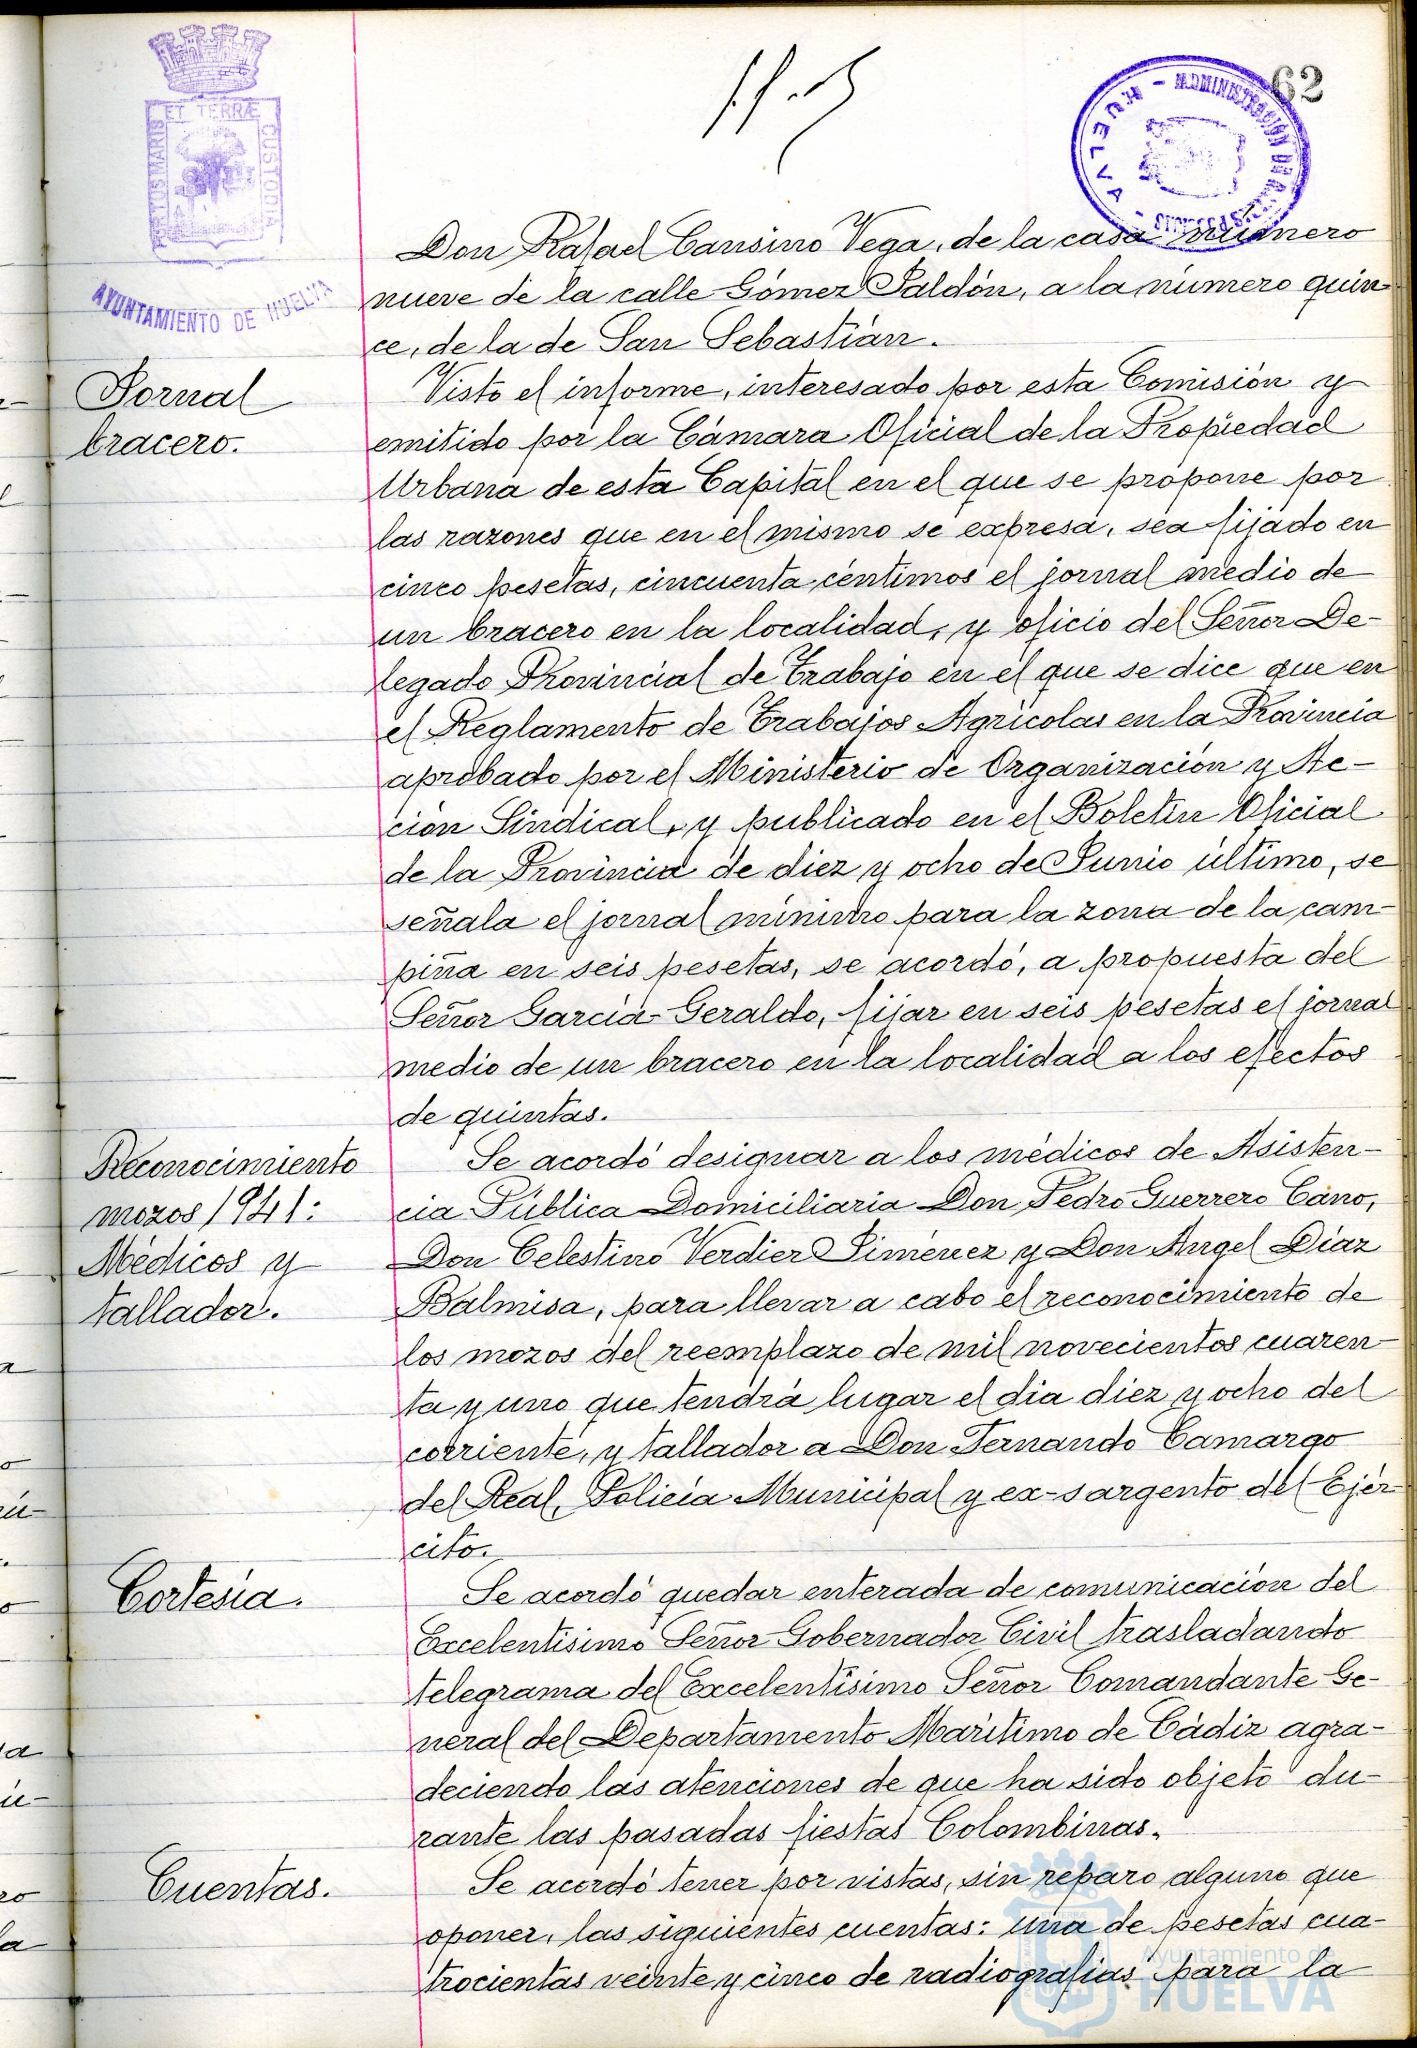 62
PORTUS MARIS ET TERRÆ CUSTODIA
AYUNTAMIENTO DE HUELVA
HUELVA - ADMINISTRACIÓN DE
Don Rafael Cansino Vega, de la casa número
nueve de la calle Gómez Jaldón, a la número quin-
ce, de la de San Sebastián.
Jornal
bracero.
Visto el informe, interesado por esta Comisión y
emitido por la Cámara Oficial de la Propiedad
Urbana de esta Capital en el que se propone por
las razones que en el mismo se expresa, sea fijado en
cinco pesetas, cincuenta céntimos el jornal medio de
un bracero en la localidad, y oficio del Señor De-
legado Provincial de Trabajo en el que se dice que en
el Reglamento de Trabajos Agrícolas en la Provincia
aprobado por el Ministerio de Organización y Ac-
ción Sindical, y publicado en el Boletín Oficial
de la Provincia de diez y ocho de Junio último, se
señala el jornal mínimo para la zona de la cam-
piña en seis pesetas, se acordó, a propuesta del
Señor García Geraldo, fijar en seis pesetas el jornal
medio de un bracero en la localidad a los efectos
de quintas.
Reconocimiento
mozos 1941:
Médicos y
tallador.
Se acordó designar a los médicos de Asisten-
cia Pública Domiciliaria Don Pedro Guerrero Cano,
Don Celestino Verdier Jiménez y Don Angel Díaz
Balmisa, para llevar a cabo el reconocimiento de
los mozos del reemplazo de mil novecientos cuaren-
ta y uno que tendrá lugar el día diez y ocho del
corriente, y tallador a Don Fernando Camargo
del Real, Policía Municipal y ex-sargento del Ejér-
cito.
Cortesía.
Se acordó quedar enterada de comunicación del
Excelentísimo Señor Gobernador Civil trasladando
telegrama del Excelentísimo Señor Comandante Ge-
neral del Departamento Marítimo de Cádiz agra-
deciendo las atenciones de que ha sido objeto du-
rante las pasadas fiestas Colombinas.
Cuentas.
Se acordó tener por vistas, sin reparo alguno que
oponer, las siguientes cuentas: una de pesetas cua-
trocientas veinte y cinco de radiografías para la
Ayuntamiento de
HUELVA